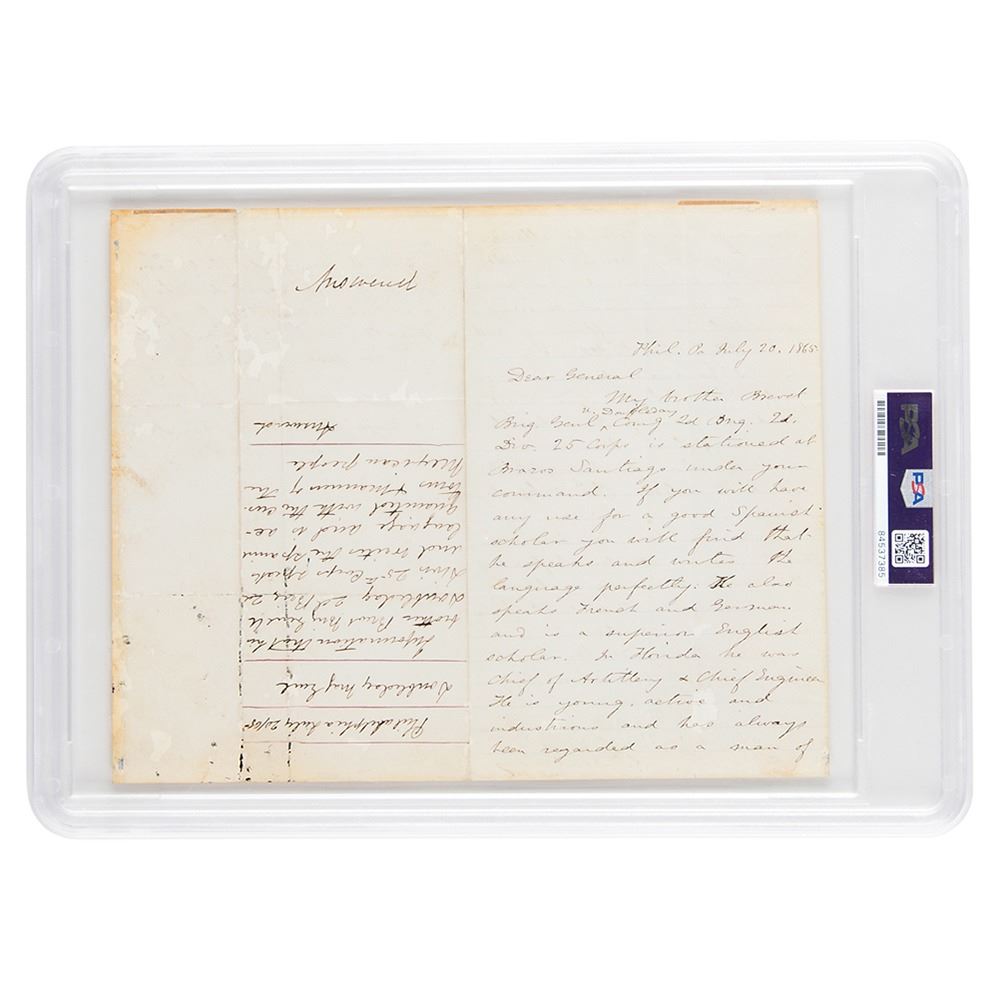 Answered
Phil. Pa July 20. 1865
Dear General
My brother Brevet
Ul. Doubleday
Brig. Genl, Comg 2d Brig. 2d.
Div. 25 Corps is stationed at
Brazos Santiago under your
command. If you will have
any use for a good Spanish
scholar you will find that
he speaks and writes the
language perfectly. He also
speaks French and German
and is a superior English
scholar. In Florida he was
Chief of Artillery & Chief Engineer
He is young, active and
industrious and has always
been regarded as a man of
Philadelphia July 20/65
Doubleday Maj Genl
Information that he
brother Brevt Brig Genl
Doubleday 2d Brig 2d
Divn 25th Corps speaks
and writes the Spanish
language and is ac-
quainted with the cus-
toms & manners of the
Mexican people
Answered
PSA
PSA
84537385